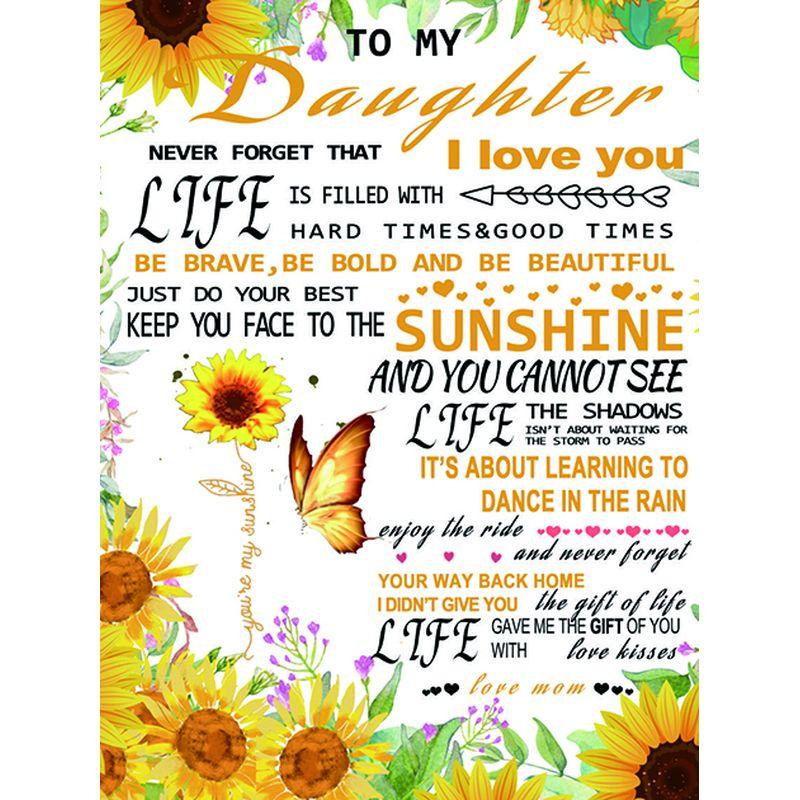 TO MY
Daughter
NEVER FORGET THAT I love you
LIFE IS FILLED WITH
HARD TIMES&GOOD TIMES
BE BRAVE,BE BOLD AND BE BEAUTIFUL
JUST DO YOUR BEST
KEEP YOU FACE TO THE SUNSHINE
AND YOU CANNOT SEE
LIFE THE SHADOWS
ISN'T ABOUT WAITING FOR
THE STORM TO PASS
IT'S ABOUT LEARNING TO
DANCE IN THE RAIN
enjoy the ride
and never forget
YOUR WAY BACK HOME
I DIDN'T GIVE YOU the gift of life
LIFE GAVE ME THE GIFT OF YOU
WITH love kisses
love mom
you're my sunshine